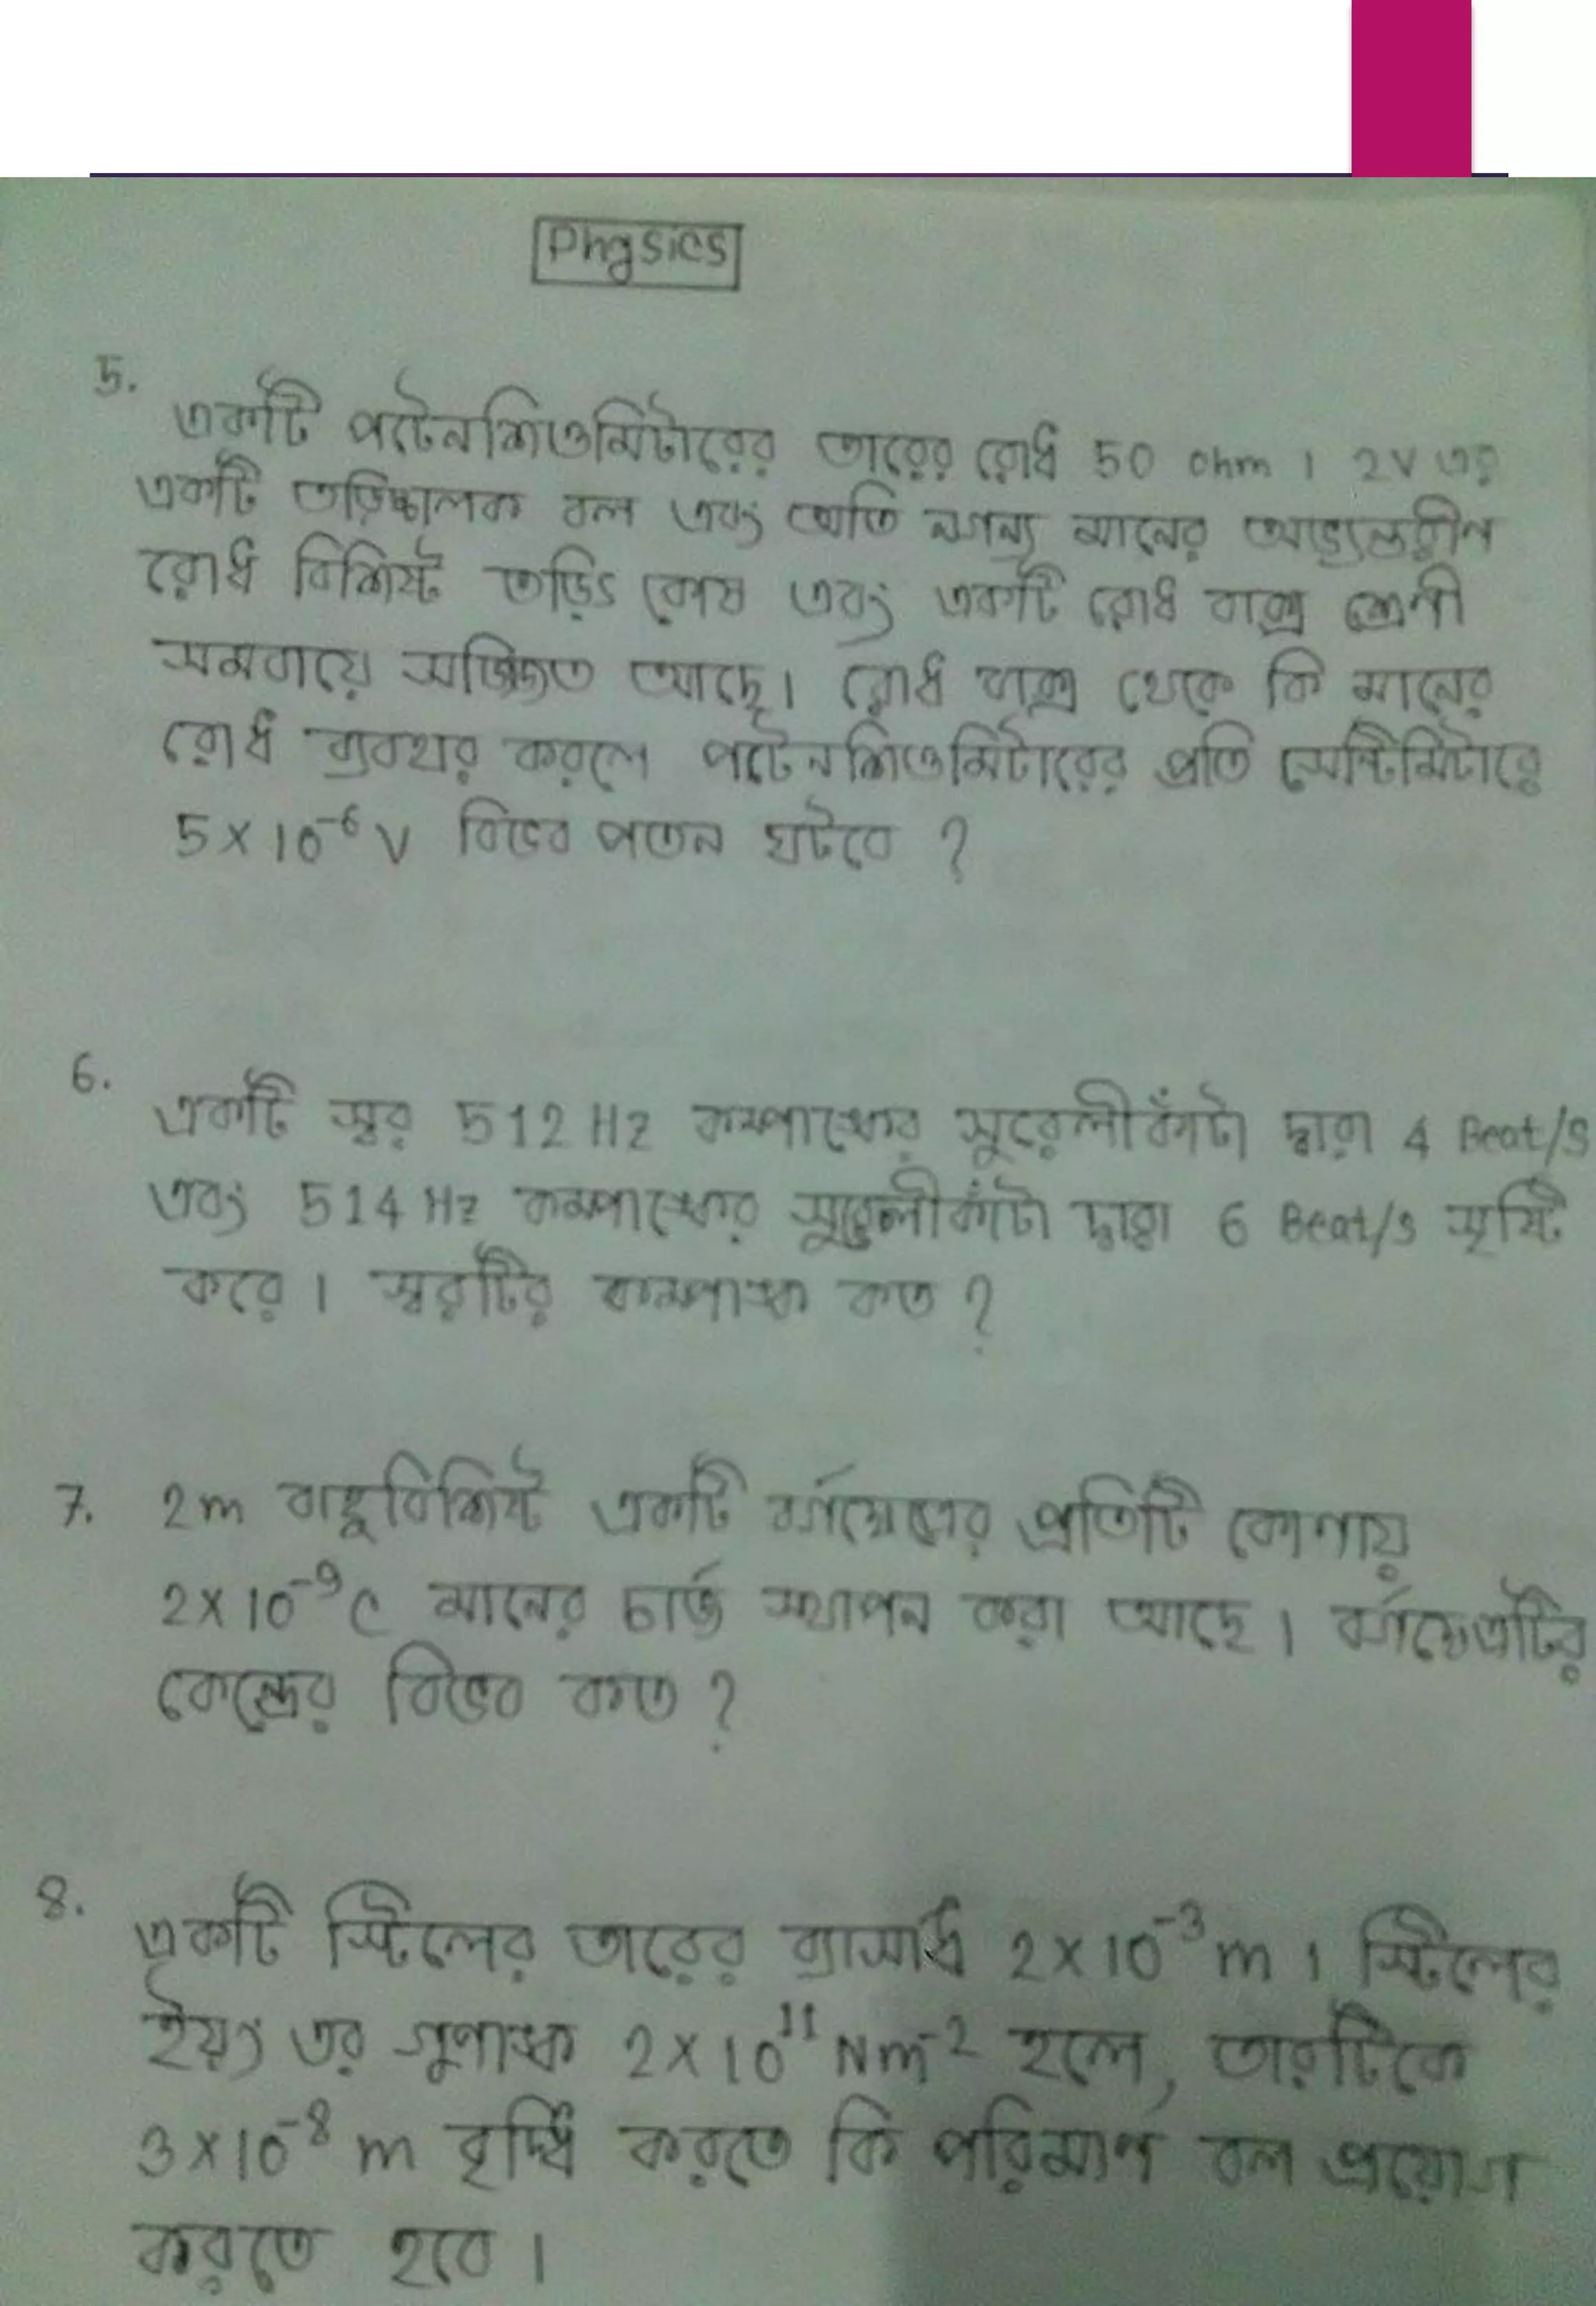 Physics
5.
একটি পটেনশিওমিটারের তারের রোধ 50 ohm । 2V এর
একটি তড়িচ্চালক বল এবং অতি নগন্য মানের অভ্যন্তরীন
রোধ বিশিষ্ট তড়িৎ কোষ এবং একটি রোধ বাক্স শ্রেণী
সমবায়ে সজ্জিত আছে। রোধ বাক্স থেকে কি মানের
রোধ ব্যবহার করলে পটেনশিওমিটারের প্রতি সেন্টিমিটারে
5×10⁻⁶ V বিভব পতন ঘটবে ?
6.
একটি স্বর 512 Hz কম্পাংকের সুরেলীকাঁটা দ্বারা 4 Beat/s
এবং 514 Hz কম্পাংকের সুরেলীকাঁটা দ্বারা 6 Beat/s সৃষ্টি
করে । স্বরটির কম্পাংক কত ?
7. 2m বাহুবিশিষ্ট একটি বর্গক্ষেত্রের প্রতিটি কোণায়
2×10⁻⁹C মানের চার্জ স্থাপন করা আছে । বর্গক্ষেত্রটির
কেন্দ্রের বিভব কত ?
8.
একটি স্টিলের তারের ব্যাসার্ধ 2×10⁻³ m । স্টিলের
ইয়ং এর গুণাংক 2×10¹¹ Nm⁻² হলে, তারটিকে
3×10⁻⁸ m বৃদ্ধি করতে কি পরিমাণ বল প্রয়োগ
করতে হবে ।